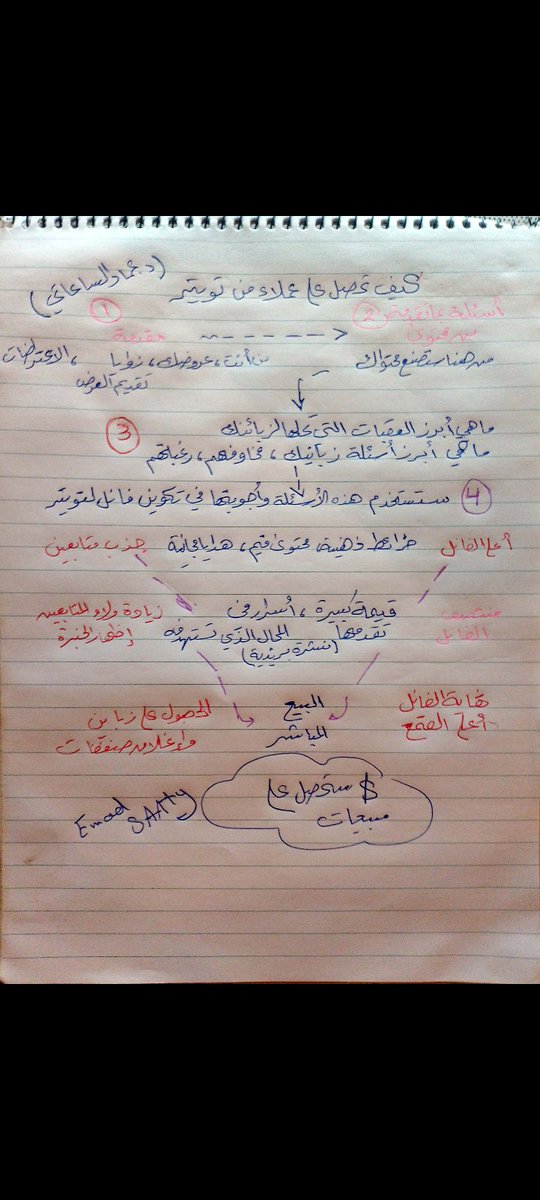 كيف تحصل على عملاء من تويتر (د. عماد الساعاتي)
① مقدمة
② أسئلة
من محتوى
من أنت، عروضك، زوايا تقديم العرض، الاعتراضات
من هنا ستصنع محتواك
③ ما هي أبرز العقبات التي تحلها لزبائنك
ما هي أبرز أسئلة زبائنك، مخاوفهم، رغباتهم
④ ستستخدم هذه الأسئلة وأجوبتها في تكوين فانل لتويتر
أعلى الفانل خرائط ذهنية، محتوى قيم، هدايا مجانية جذب متابعين
منتصف الفانل قيمة كبيرة تقدمها، أسرار في المجال الذي تستهدفه زيادة ولاء المتابعين
(نشرة بريدية) إظهار الخبرة
نهاية الفانل البيع الحصول على زبائن
المباشر وإغلاق صفقات
$ ستحصل على
مبيعات
Emad SAATy